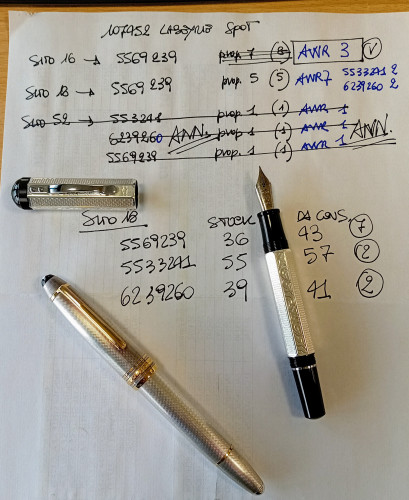 107952 SPOT
SITO 16 → 5569239 prop. 7 (8) AWR 3 V
SITO 18 → 5569239 prop. 5 (5) AWR7 5533241 2
6239260 2
SITO 52 → 553241 prop. 1 (1) AWR 1
6239260 ANN. prop. 1 (1) AWR 1 ANN.
5569239 prop. 1 (1) AWR 1
SITO 18 STOCK DA CONS.
5569239 36 43 7
5533241 55 57 2
6239260 39 41 2